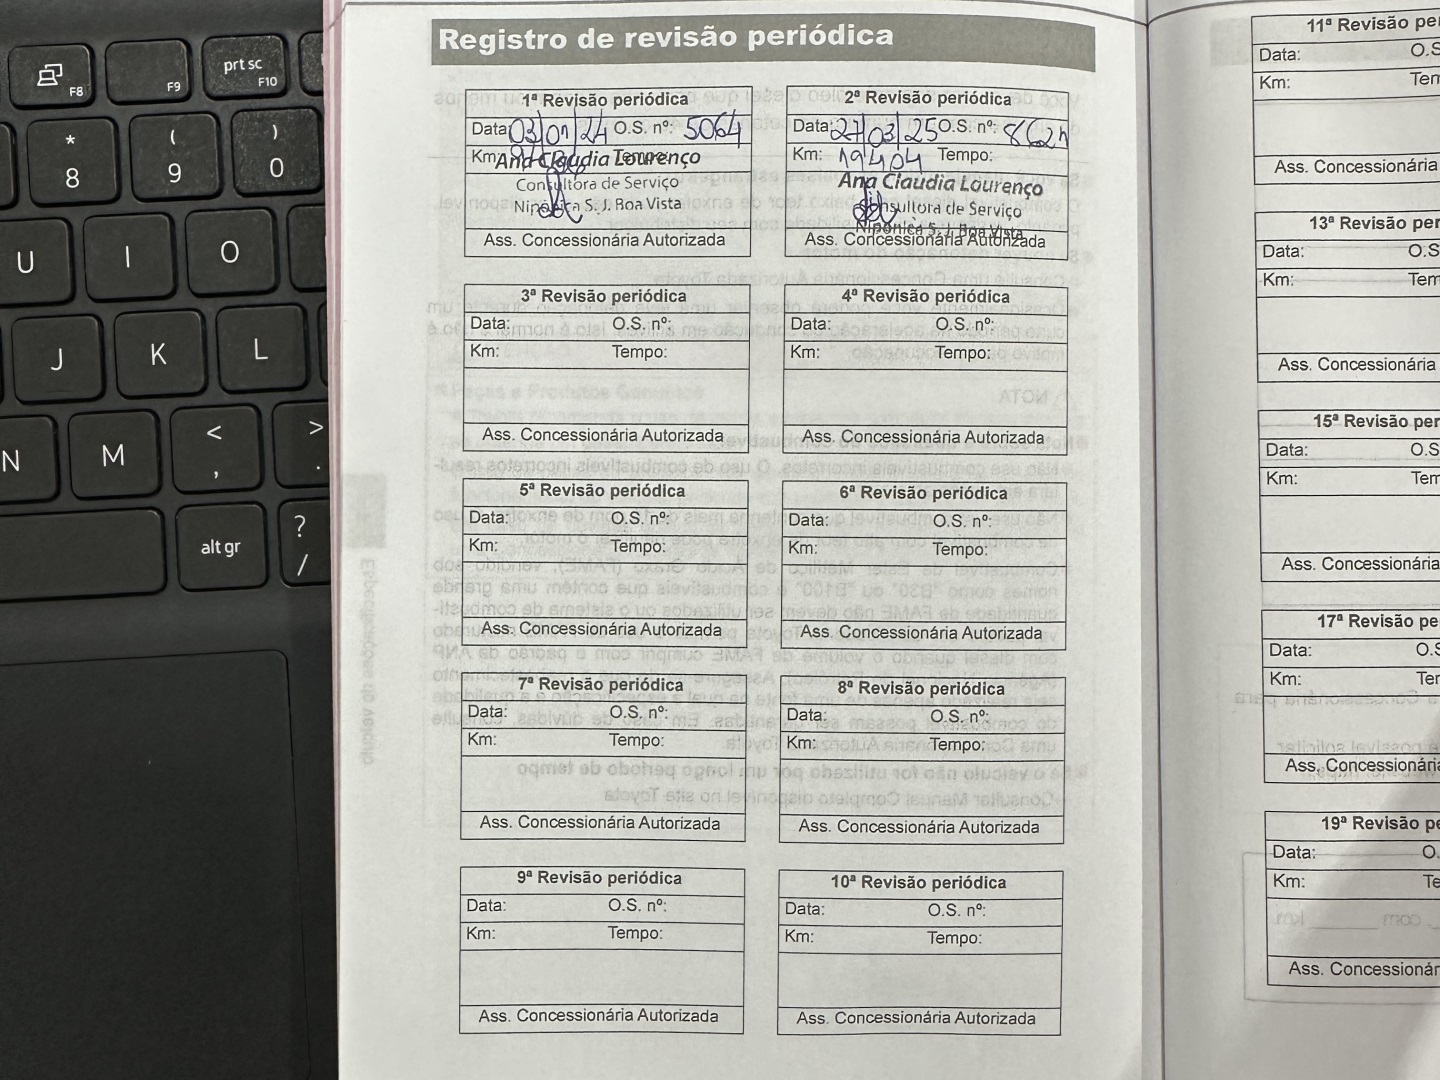 Registro de revisão periódica
1ª Revisão periódica
Data: 03/01/24 O.S. nº: 5064
Km: Tempo:
Ana Claudia Lourenço
Consultora de Serviço
Niponica S. J. Boa Vista
Ass. Concessionária Autorizada
2ª Revisão periódica
Data: 27/03/25 O.S. nº:
Km: 19404 Tempo:
Ana Claudia Lourenço
Consultora de Serviço
Niponica S. J. Boa Vista
Ass. Concessionária Autorizada
3ª Revisão periódica
Data: O.S. nº:
Km: Tempo:
Ass. Concessionária Autorizada
4ª Revisão periódica
Data: O.S. nº:
Km: Tempo:
Ass. Concessionária Autorizada
5ª Revisão periódica
Data: O.S. nº:
Km: Tempo:
Ass. Concessionária Autorizada
6ª Revisão periódica
Data: O.S. nº:
Km: Tempo:
Ass. Concessionária Autorizada
7ª Revisão periódica
Data: O.S. nº:
Km: Tempo:
Ass. Concessionária Autorizada
8ª Revisão periódica
Data: O.S. nº:
Km: Tempo:
Ass. Concessionária Autorizada
9ª Revisão periódica
Data: O.S. nº:
Km: Tempo:
Ass. Concessionária Autorizada
10ª Revisão periódica
Data: O.S. nº:
Km: Tempo:
Ass. Concessionária Autorizada
11ª Revisão per
Data: O.S
Km: Tem
Ass. Concessionária
13ª Revisão per
Data: O.S
Km: Tem
Ass. Concessionária
15ª Revisão per
Data: O.S
Km: Tem
Ass. Concessionária
17ª Revisão pe
Data: O.S
Km: Ter
Ass. Concessionária
19ª Revisão pe
Data: O.
Km: Te
Ass. Concessionár
F8
F9
prt sc
F10
*
8
(
9
)
0
U
I
O
J
K
L
N
M
<
,
>
.
alt gr
?
/